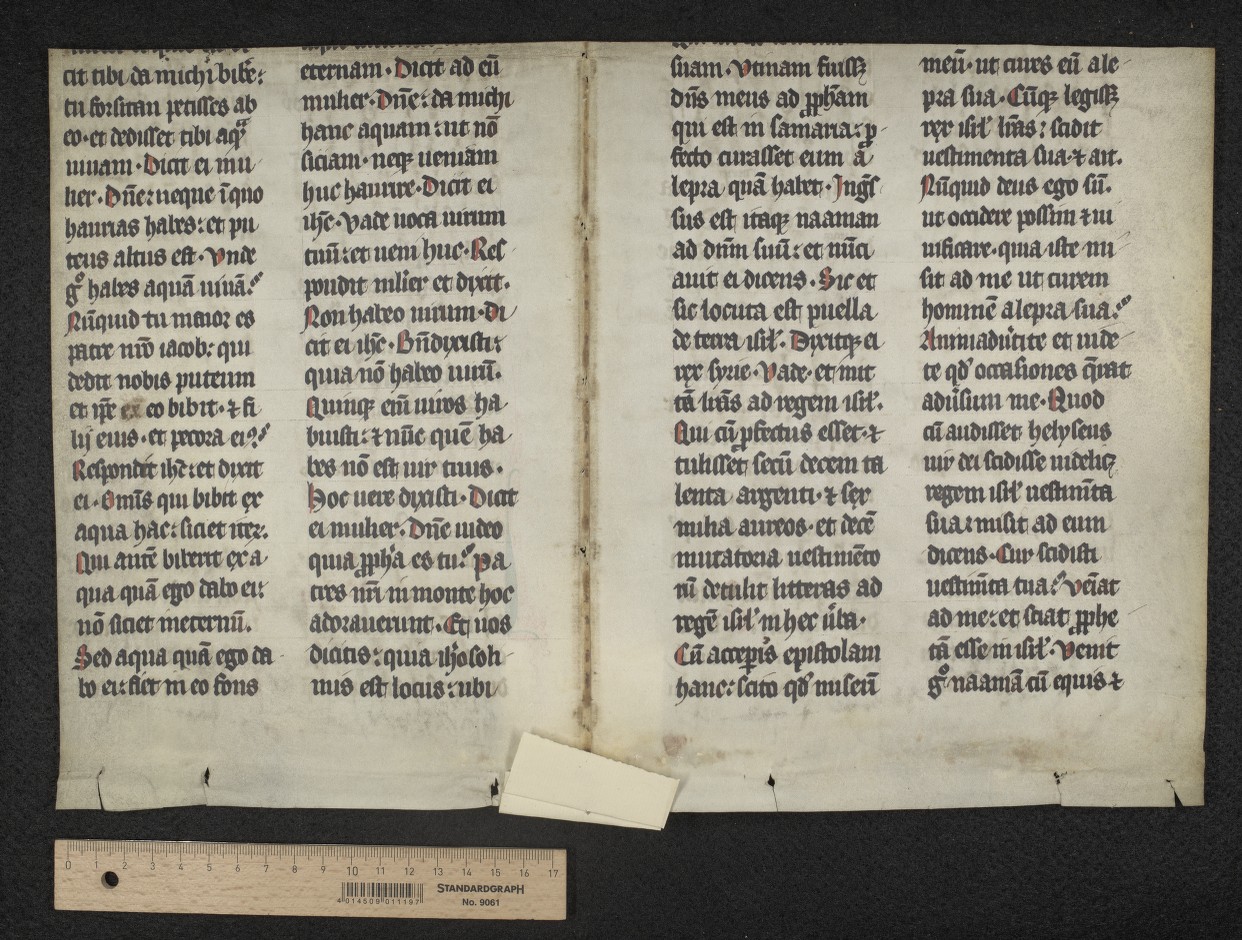 cit tibi da michi bibe:
tu forsitan petisses ab
eo. et dedisset tibi aqͣ
uiuam. Dicit ei mu
lier. Dn̄e: neque ī quo
haurias habes: et pu
teus altus est. Vnde
gͦ habes aquā uiuā?
Nūquid tu maior es
patre nr̄o iacob: qui
dedit nobis puteum
et ip̄e ex eo bibit. ⁊ fi
lij eius. et pecora eiꝰ?
Respondit ihc̄: et dixit
ei. Om̄is qui bibit ex
aqua hac: siciet iteꝝ.
Qui autē biberit ex a
qua quā ego dabo ei:
nō siciet in eternū.
Sed aqua quā ego da
bo ei: fiet in eo fons
eternam. Dicit ad eū
mulier. Dn̄e: da michi
hanc aquam: ut nō
siciam. neqꝫ ueniam
huc haurire. Dicit ei
ihc̄. Vade uoca uirum
tuū: et ueni huc. Res
pondit ml̄ier et dixit.
Non habeo uirum. Di
cit ei ihc̄. Bn̄ dixisti:
quia nō habeo uirū.
Quinqꝫ eni̅ uiros ha
buisti: ⁊ nūc quē ha
bes nō est uir tuus.
Hoc uere dixisti. Dicit
ei mulier. Dn̄e uideo
quia ꝓph̄a es tu? Pa
tres nr̄i in monte hoc
adorauerunt. Et uos
dicitis: quia ih̄osoli
mis est locus: ubi
suam. Vtinam fuissꝫ
dn̄s meus ad ꝓph̄am
qui est in samaria: ꝓ
fecto curasset eum a
lepra quā habet. Ingͥs
sus est itaqꝫ naaman
ad dn̄m suū: et nūci
auit ei dicens. Sic et
sic locuta est puella
de terra isrl̄. Dixitqꝫ ei
rex syrie. Vade. et mit
tā lr̄as ad regem isrl̄.
Qui cū ꝓfectus esset. ⁊
tulisset secū decem ta
lenta argenti. ⁊ sex
milia aureos. et decē
mutatoria uestimēto
rū detulit litteras ad
regē isrl̄ in hec ūba.
Cū acceperis epistolam
hanc: scito qd̄ miserī
meū. ut cures eū a le
pra sua. Cūqꝫ legissꝫ
rex isrl̄ lr̄as: scidit
uestimenta sua. ⁊ ait.
Nūquid deus ego sū.
ut occidere possim ⁊ ui
uificare. quia iste mi
sit ad me ut curem
hominē a lepra sua?
Animaduertite et uide
te qd̄ occasiones q̄rat
aduersum me. Quod
cū audisset helyseus
uir dei scidisse uidelicꝫ
regem isrl̄ uestim̄ta
sua: misit ad eum
dicens. Cur scidisti
uestim̄ta tua? Veniat
ad me: et sciat ꝓphe
tā esse in isrl̄. Venit
gͦ naamā cū equis ⁊
0 1 2 3 4 5 6 7 8 9 10 11 12 13 14 15 16 17
STANDARDGRAPH
4 014509 011197
No. 9061